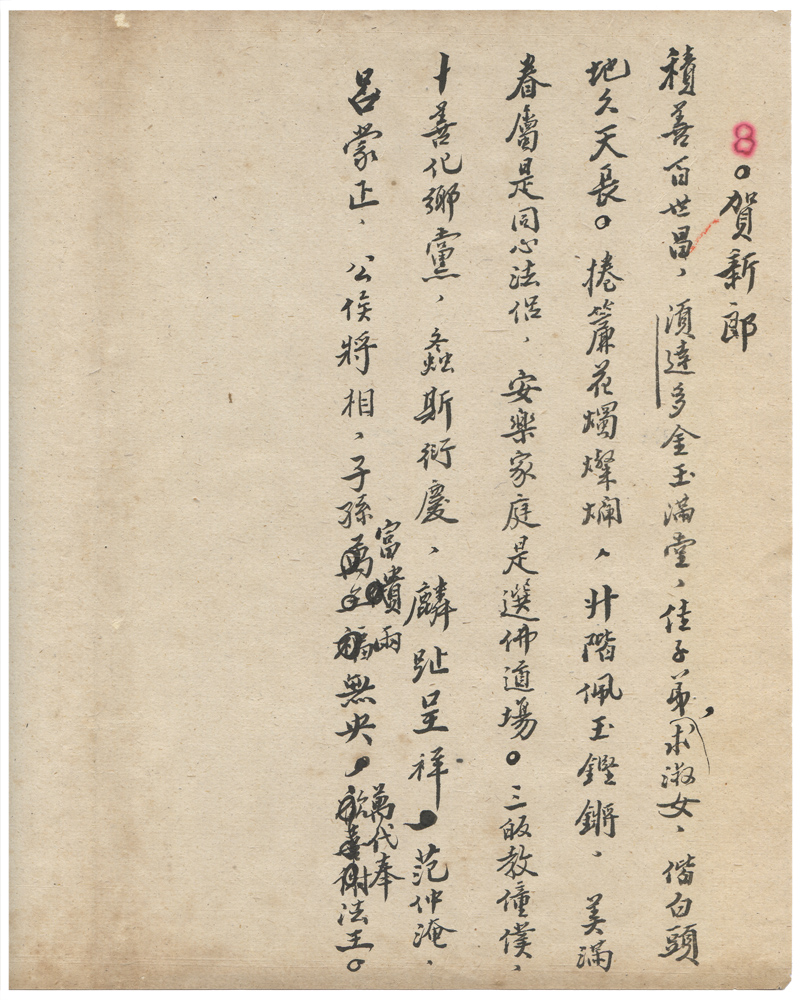 8。賀新郎
積善百世昌，須達多金玉滿堂，佳子弟求淑女，偕白頭
地久天長。捲簾花燭燦爛，升階佩玉鏗鏘，美滿
眷屬是同心法侶，安樂家庭是選佛道場。三皈教僮僕，
十善化鄉黨，螽斯衍慶，麟趾呈祥。范仲淹，
呂蒙正，公侯將相，子孫富貴兩無央，萬代奉法王。